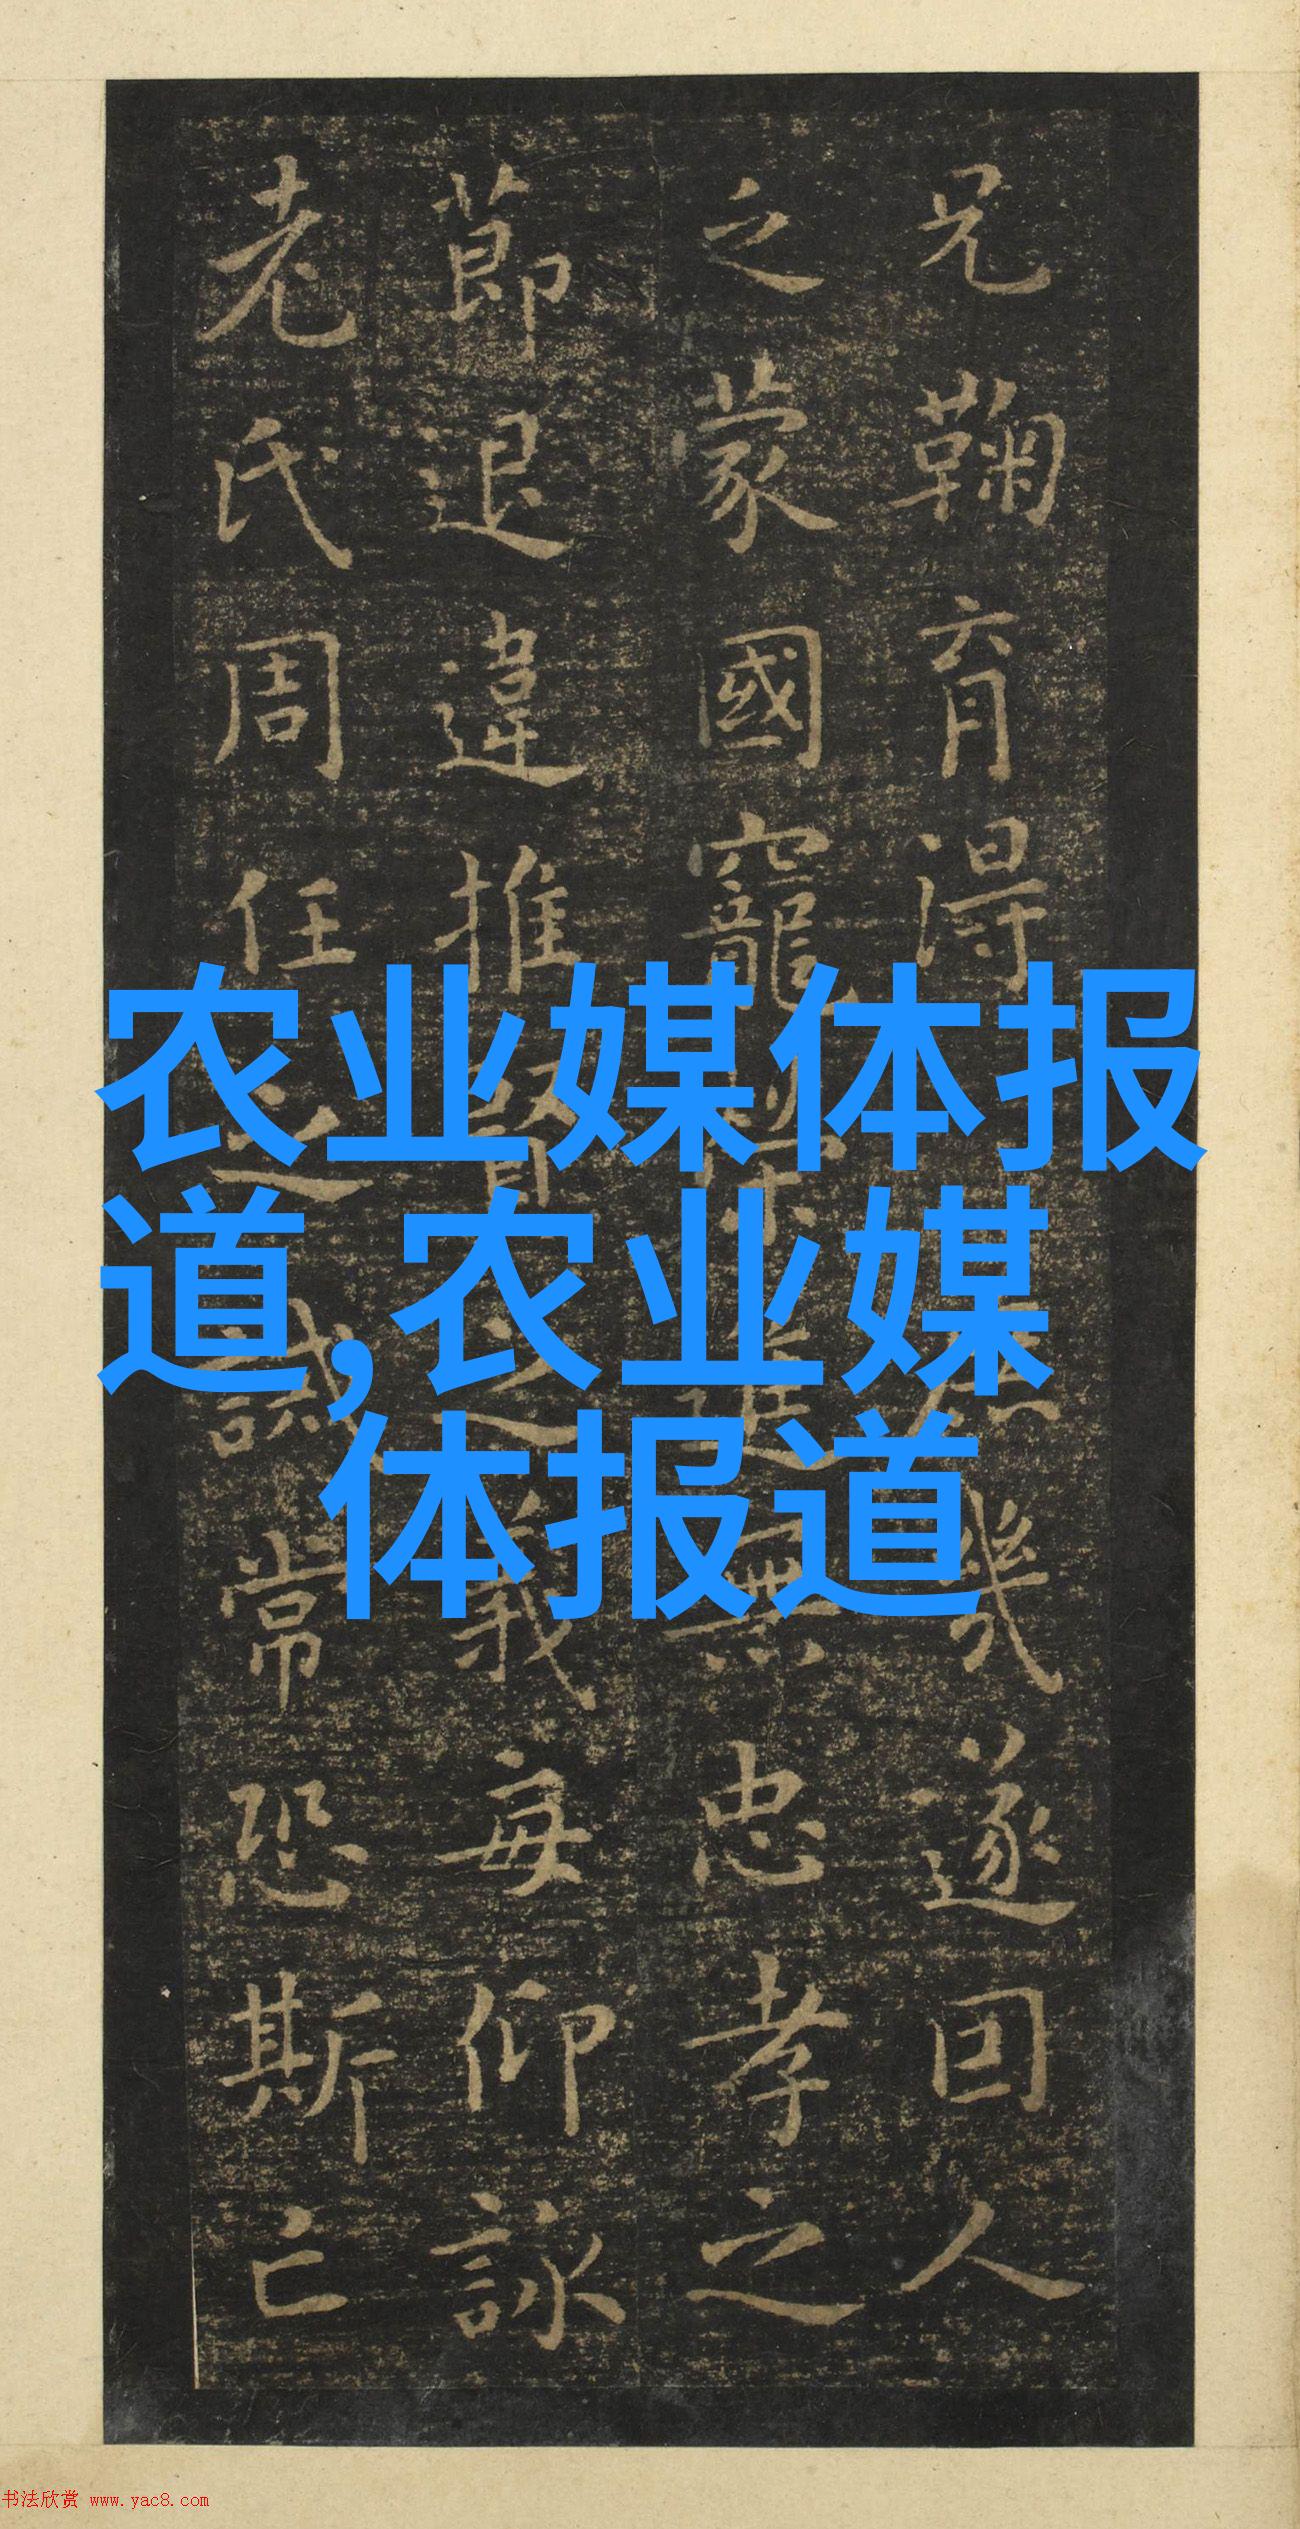 兄鞠育得幾遂因人
之蒙國寵榮進無忠孝之
節退違推賢之義每仰詠
老氏周任之誡常恐斯亡
农业媒体报
道,农业媒
体报道
书法欣赏 www.yac8.com